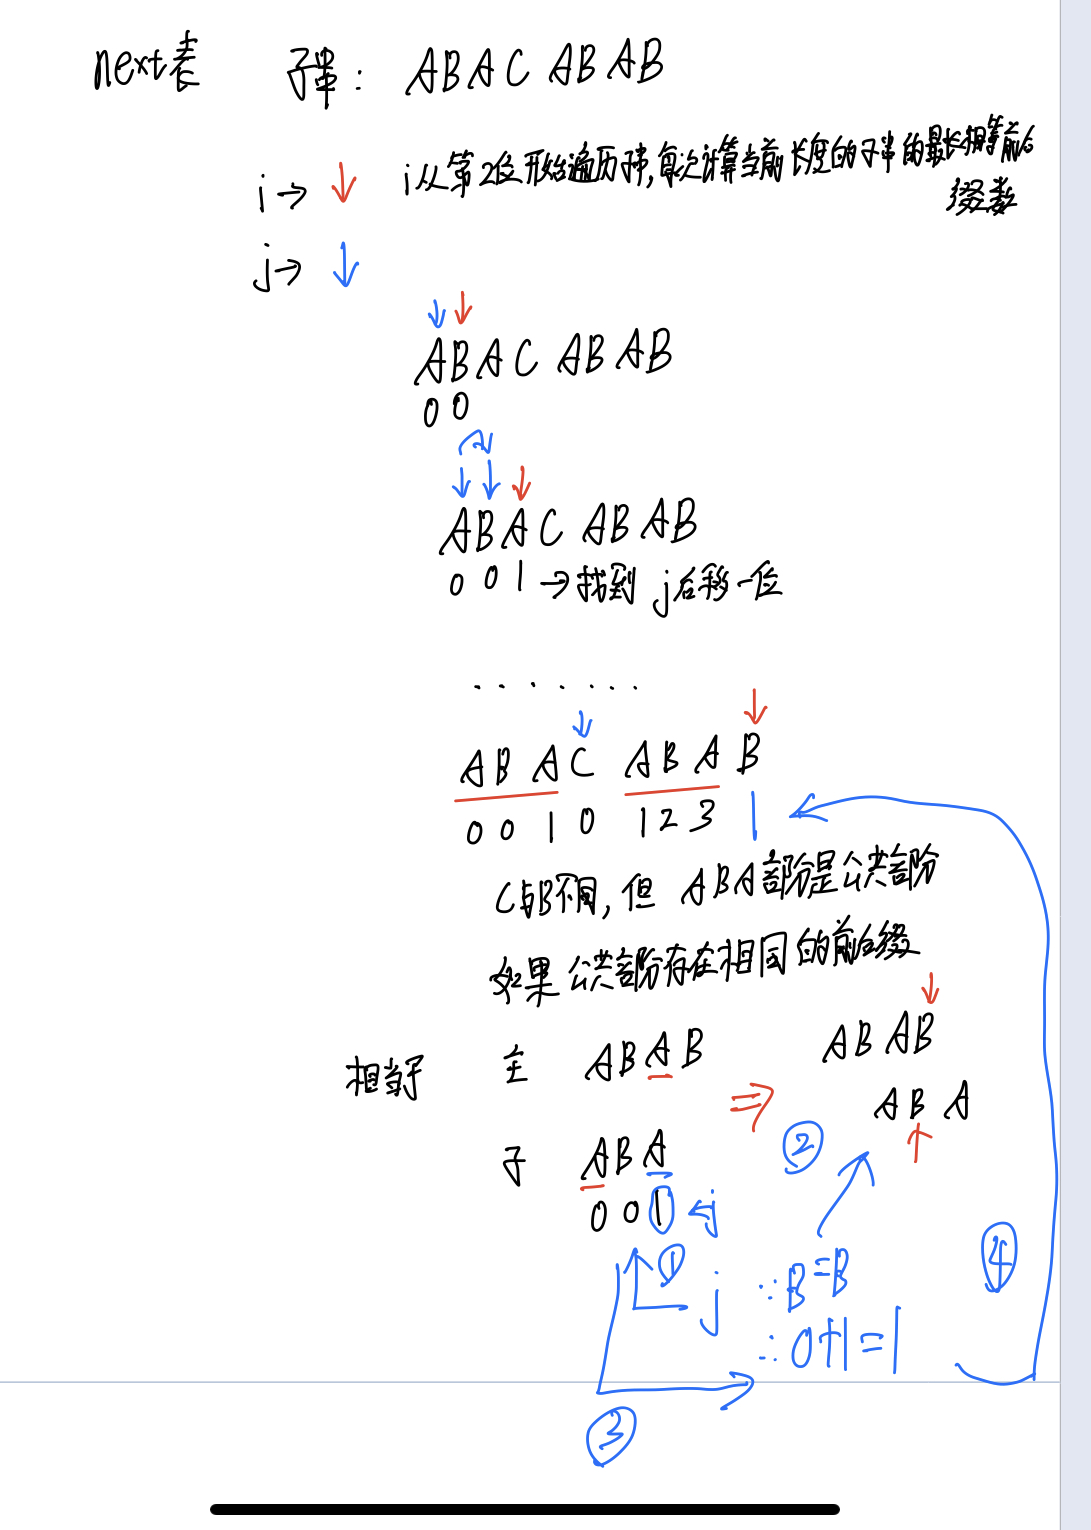 next表 子串: ABAC ABAB
i→ ↓ i从第2位开始遍历子串,每次计算当前长度的子串的最长相等前后
缀数
j→ ↓
ABAC ABAB
0 0
ABAC ABAB
0 0 1 →找到 j后移一位
.......
ABAC ABAB
0 0 1 0 1 2 3 1
C与B不同,但 ABA部分是公共部分
如果公共部分存在相同的前后缀
相当于 主 ABAB ⇒ ABAB
ABA
②
子 ABA
0 0 1 ← j
① j ∵B=B
④
∴0+1=1
③